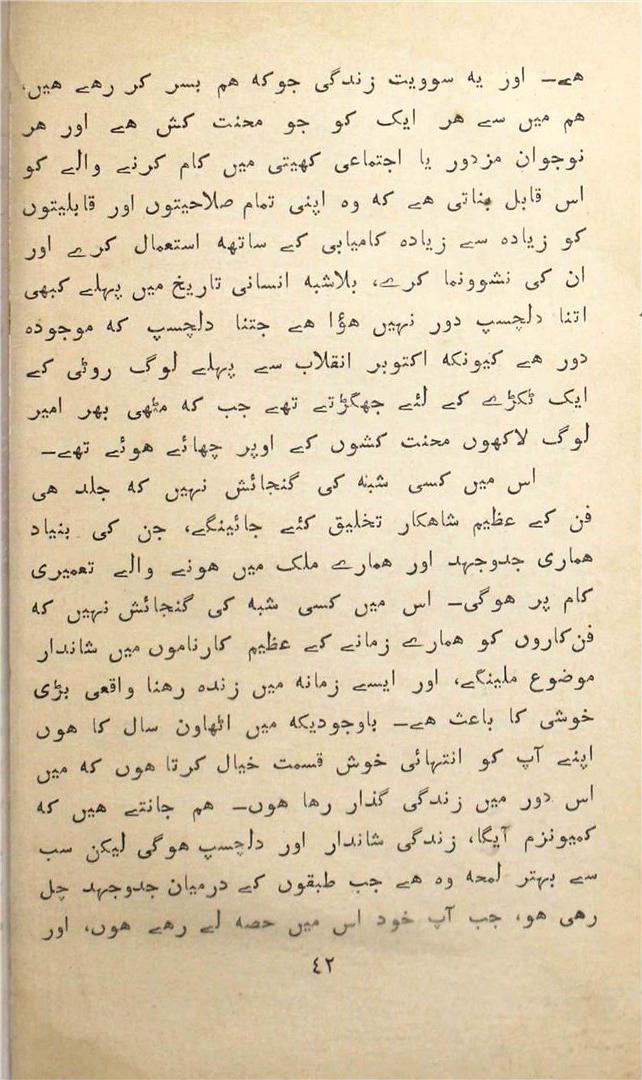 هے۔ اور یه سوویت زندگی جوکه هم بسر کر رهے هیں،
هم میں سے هر ایک کو جو محنت کش هے اور هر
نوجوان مزدور یا اجتماعی کهیتی میں کام کرنے والے کو
اس قابل بناتی هے که وه اپنی تمام صلاحیتوں اور قابلیتوں
کو زیاده سے زیاده کامیابی کے ساتهه استعمال کرے اور
ان کی نشوونما کرے، بلاشبه انسانی تاریخ میں پہلے کبهی
اتنا دلچسپ دور نہیں هؤا هے جتنا دلچسپ که موجوده
دور هے کیونکه اکتوبر انقلاب سے پہلے لوگ روٹی کے
ایک ٹکڑے کے لئے جهگڑتے تهے جب که مٹهی بهر امیر
لوگ لاکهوں محنت کشوں کے اوپر چهائے هوئے تهے۔
اس میں کسی شبه کی گنجائش نہیں که جلد هی
فن کے عظیم شاهکار تخلیق کئے جائینگے، جن کی بنیاد
هماری جدوجہد اور همارے ملک میں هونے والے تعمیری
کام پر هوگی۔ اس میں کسی شبه کی گنجائش نہیں که
فن‌کاروں کو همارے زمانے کے عظیم کارناموں میں شاندار
موضوع ملینگے، اور ایسے زمانه میں زنده رهنا واقعی بڑی
خوشی کا باعث هے۔ باوجودیکه میں اٹهاون سال کا هوں
اپنے آپ کو انتہائی خوش قسمت خیال کرتا هوں که میں
اس دور میں زندگی گذار رها هوں۔ هم جانتے هیں که
کمیونزم آیگا، زندگی شاندار اور دلچسپ هوگی لیکن سب
سے بہتر لمحه وه هے جب طبقوں کے درمیان جدوجہد چل
رهی هو، جب آپ خود اس میں حصه لے رهے هوں، اور
٤٢